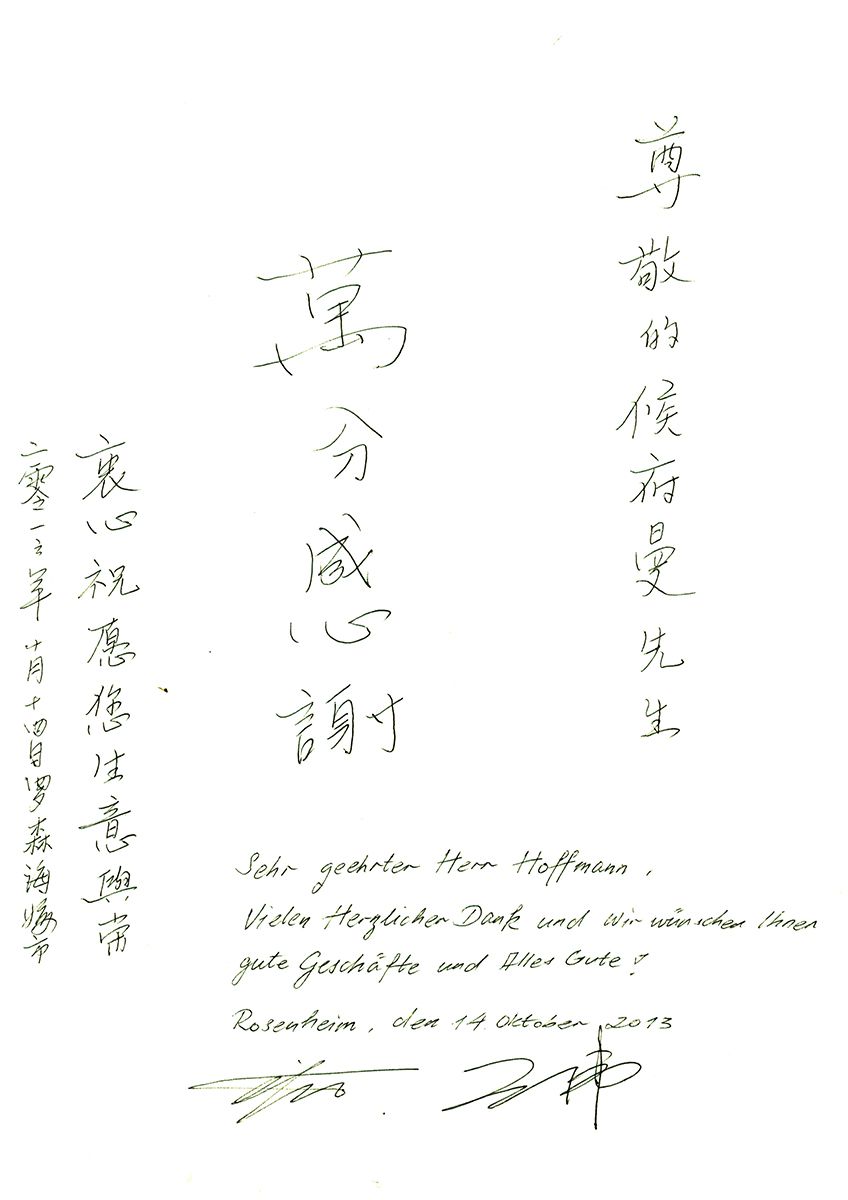 尊敬的候府曼先生
萬分感謝
衷心祝愿您生意興常
二零一三年十月十四日罗森海姆市
Sehr geehrter Herr Hoffmann,
Vielen Herzlicher Dank und wir wünschen Ihnen
gute Geschäfte und Alles Gute!
Rosenheim, den 14 Oktober 2013